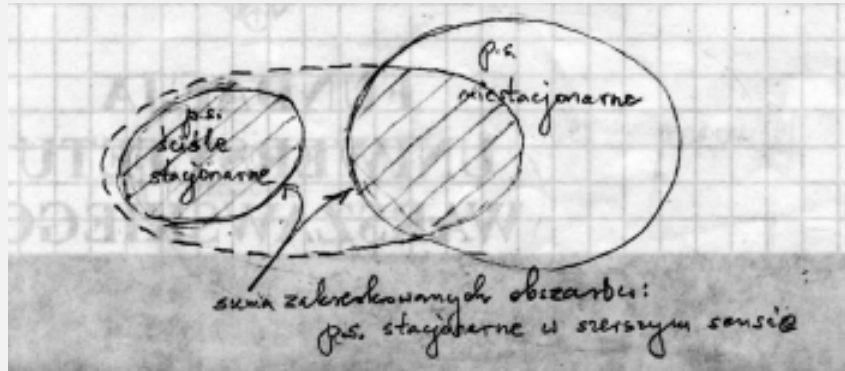 p.s.
niestacjonarne
p.s.
ściśle
stacjonarne
suma zakreskowanych obszarów:
p.s. stacjonarne w szerszym sensie